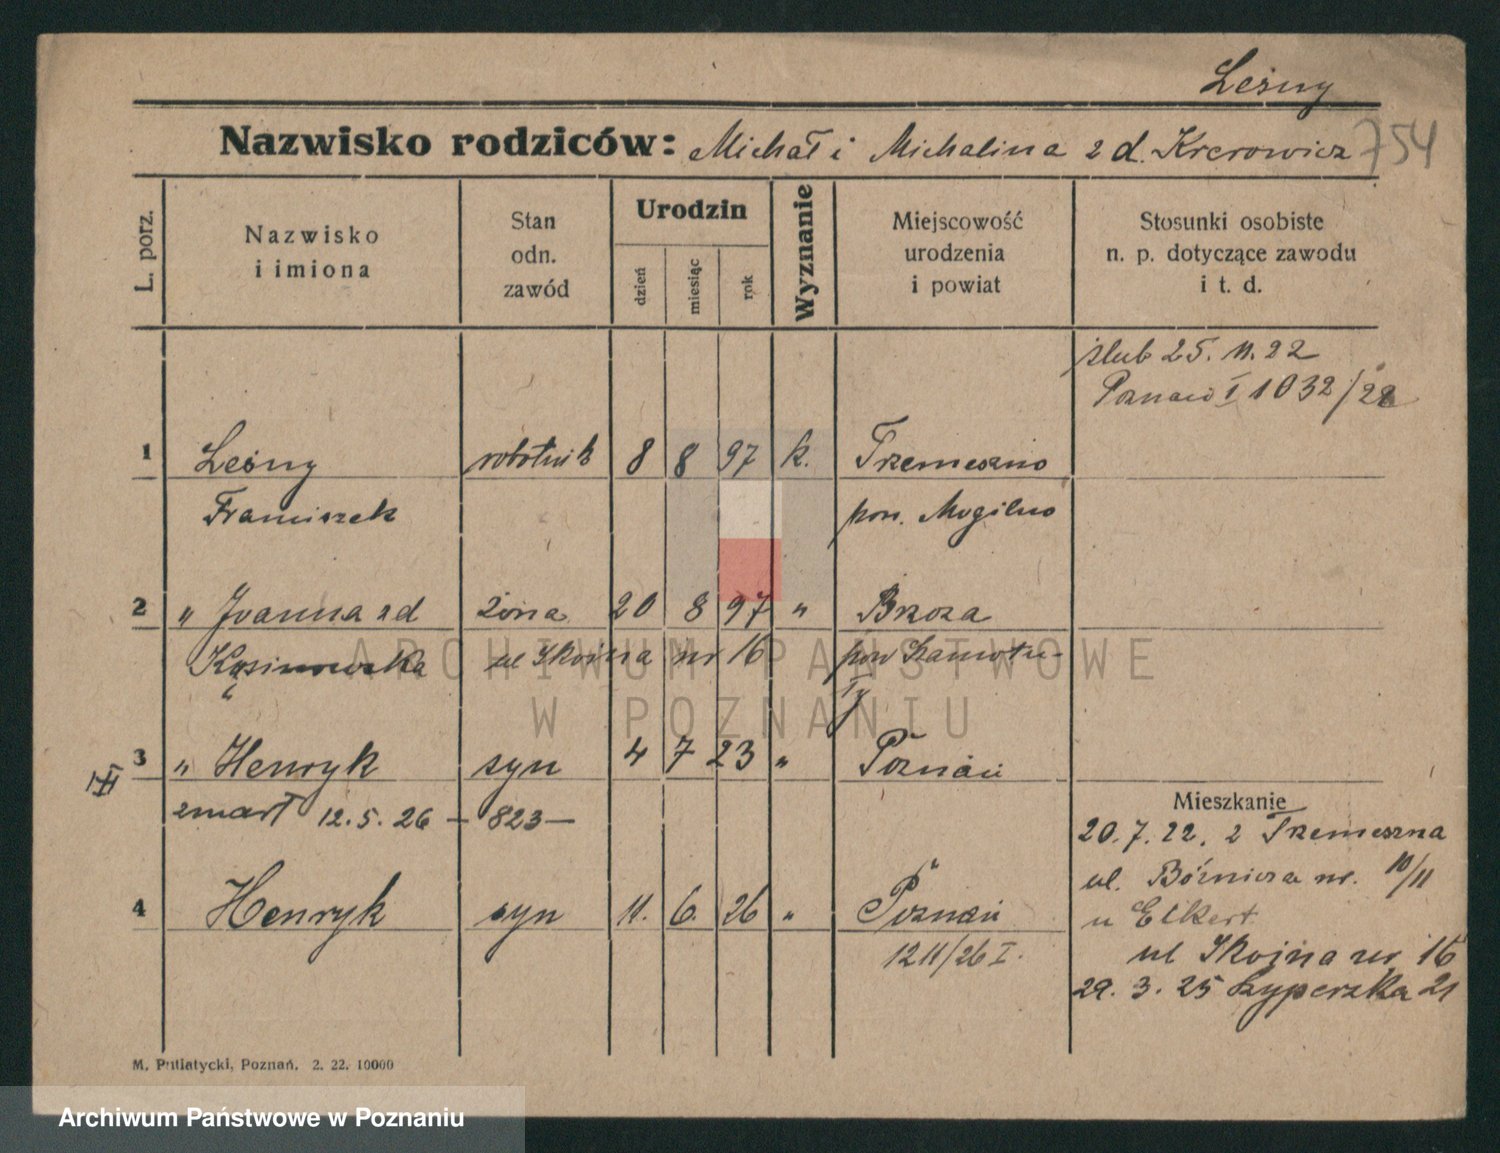 Leśny
Nazwisko rodziców: Michał i Michalina z d. Krerowicz 754
L. porz.
Nazwisko i imiona
Stan odn. zawód
Urodzin
dzień
miesiąc
rok
Wyznanie
Miejscowość urodzenia i powiat
Stosunki osobiste n. p. dotyczące zawodu i t. d.
ślub 25. 11. 22
Poznań I 1032/22
1 Leśny robotnik 8 8 97 k. Trzemeszno
Franciszek pow. Mogilno
2 " Joanna z d żona 20 8 97 " Brzoza
ul Skojna nr 16 pow Szamotu-
ły
3 " Henryk syn 4 7 23 " Poznań
zmarł 12. 5. 26 — 823 —
Mieszkanie
20. 7. 22. z Trzemeszna
ul. Bóżnicza nr. 10/11
4 Henryk syn 11. 6. 26 " Poznań
u Elkert
1211/26 I.
ul Skojna nr 16
29. 3. 25 21
M. Putiatycki, Poznań. 2. 22. 10000
ARCHIWUM PAŃSTWOWE
W POZNANIU
Archiwum Państwowe w Poznaniu